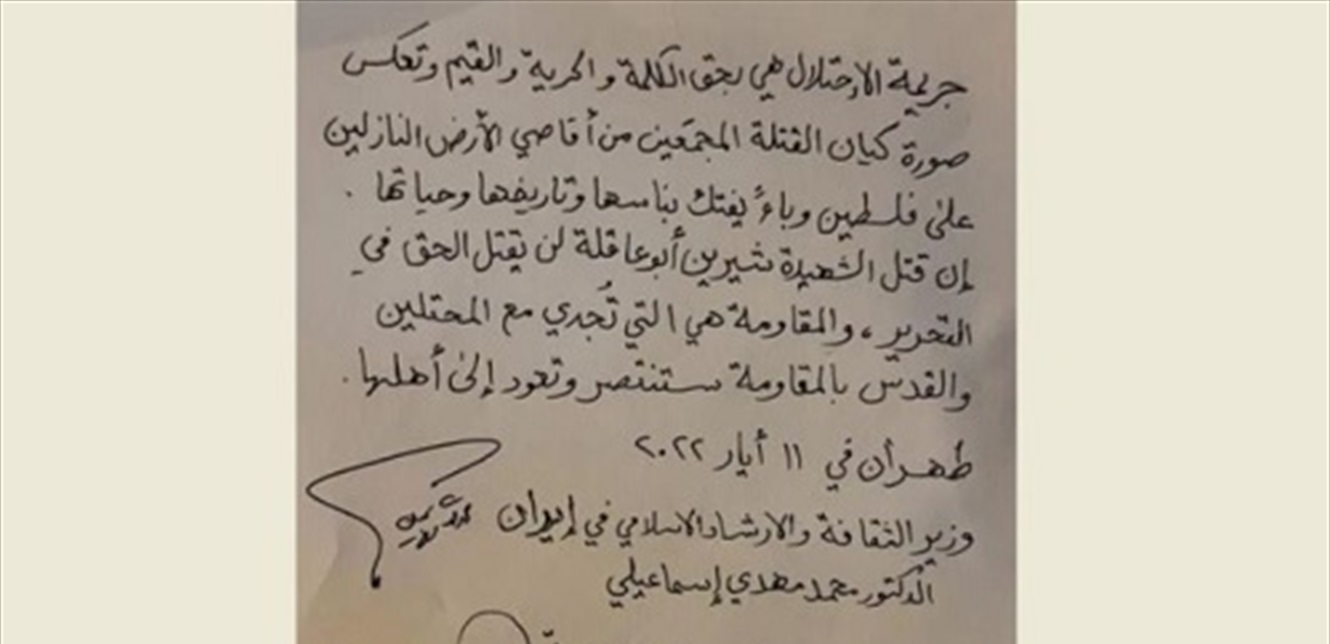 جريمة الإحتلال هي بحق الكلمة والحرية والقيم وتعكس
صورة كيان القتلة المجمَعين من أقاصي الأرض النازلين
على فلسطين وباءً يفتك بناسها وتاريخها وحياتها .
إن قتل الشهيدة شيرين أبو عاقلة لن يقتل الحق في
التحرير ، والمقاومة هي التي تُجدي مع المحتلين
والقدس بالمقاومة ستنتصر وتعود إلى أهلها .
طهران في ١١ أيار ٢٠٢٢
وزير الثقافة والارشاد الاسلامي في إيران
الدكتور محمد مهدي إسماعيلي